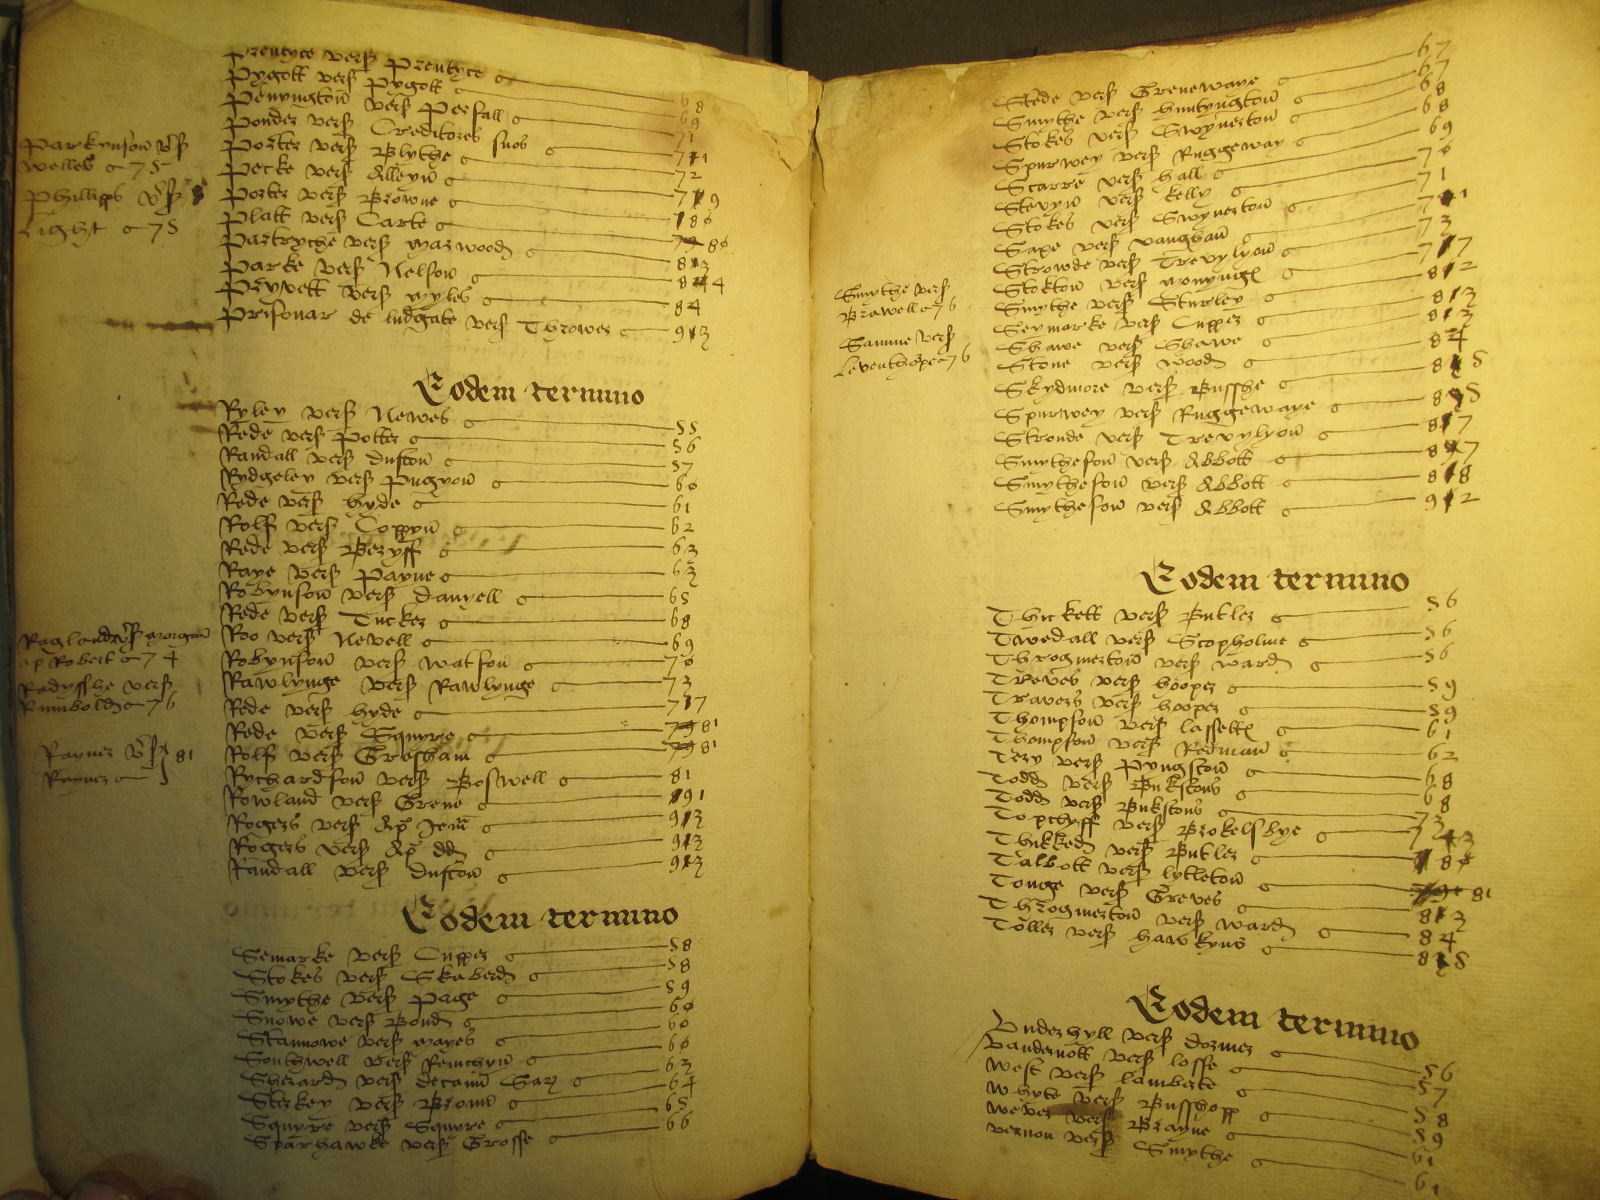 Prentyce vers Prentyce
Pygott vers Pygott 68
Penyngton vers Peesall 69
Ponder vers Creditores suos 71
Porter vers Blythe 711
Pecke vers Alleyn 72
Porter vers Browne 79
Platt vers Carte 80
Partryche vers Marwood 80
Parke vers Nelson 83
Pryvett vers Myles 84
Prisonar de ludgate vers Thrower 93
Parkynson vers
Welles 75
Phillipps vers
Light 75
Eodem termino
Ryley vers Newes 55
Rede vers Potter 56
Randall vers Duston 57
Rydgeley vers Pugyon 60
Rede vers Hyde 61
Rolf vers Coppyn 62
Rede vers Beryff 63
Raye vers Payne 63
Robynson vers Danyell 65
Rede vers Tucker 68
Roo vers Newell 69
Robynson vers Watson 70
Rawlynge vers Rawlynge 73
Rede vers Hyde 77
Rede vers Squyre 79 81
Rolf vers Gresham 79 81
Rychardson vers Boswell 81
Rowland vers Grene 91
Rogers vers Ap Jeun 93
Rogers vers Ap dd 93
Randall vers Duston 93
Raglande vers Morgan
ap Robert 74
Radysshe vers
Rumbold 76
Rayner vers
Rayner 81
Eodem termino
Semarke vers Cupper 58
Stokes vers Skaberd 58
Smythe vers Page 59
Snowe vers Bond 60
Stannowe vers Mayes 60
Southwell vers Remchyn 60
Sherard vers decanum Sar 63
Sterkey vers Brown 64
Squyre vers Squyre 65
Sparhawke vers Grosse 66
Stede vers Greneway 67
Smythe vers Huntyngton 67
Stokes vers Swynerton 68
Spurwey vers Ruggeway 68
Scarre vers Hall 69
Stevyn vers Kelly 70
Stokes vers Swynerton 71
Saxe vers Vaughan 71
Strowde vers Trevylyon 73
Stokton vers Monyng 77
Smythe vers Sturley 82
Seymarke vers Cupper 83
Shawe vers Shawe 83
Stone vers Wood 84
Skydmore vers Busshe 85
Spurwey vers Ruggewaye 85
Stronde vers Trevylyon 87
Smytheson vers Abbott 87
Smytheson vers Abbott 88
Smytheson vers Abbott 92
Smythe vers
Brawell 76
Samme vers
Leventhorpe 76
Eodem termino
Thickett vers Butler 56
Twedall vers Scopholme 56
Throgmerton vers Ward 56
Treves vers Hooper 59
Travers vers Hooper 59
Thompson vers Lassell 61
Thompson vers Redman 62
Tery vers Pyngston 68
Todd vers Bukstons 68
Todd vers Bukstons 73
Topclyff vers Brokelsbye 73
Thikked vers Butler 80
Talbott vers Lytleton
Tonge vers Greves 81
Throgmerton vers Ward 83
Toller vers Hawkyns 84
85
Eodem termino
Underhyll vers Dormer 56
Vandernott vers Losse 57
West vers Lamberte 58
Whyte vers Busshopp 59
Wever vers Brayne 61
Vernon vers Smythe 61